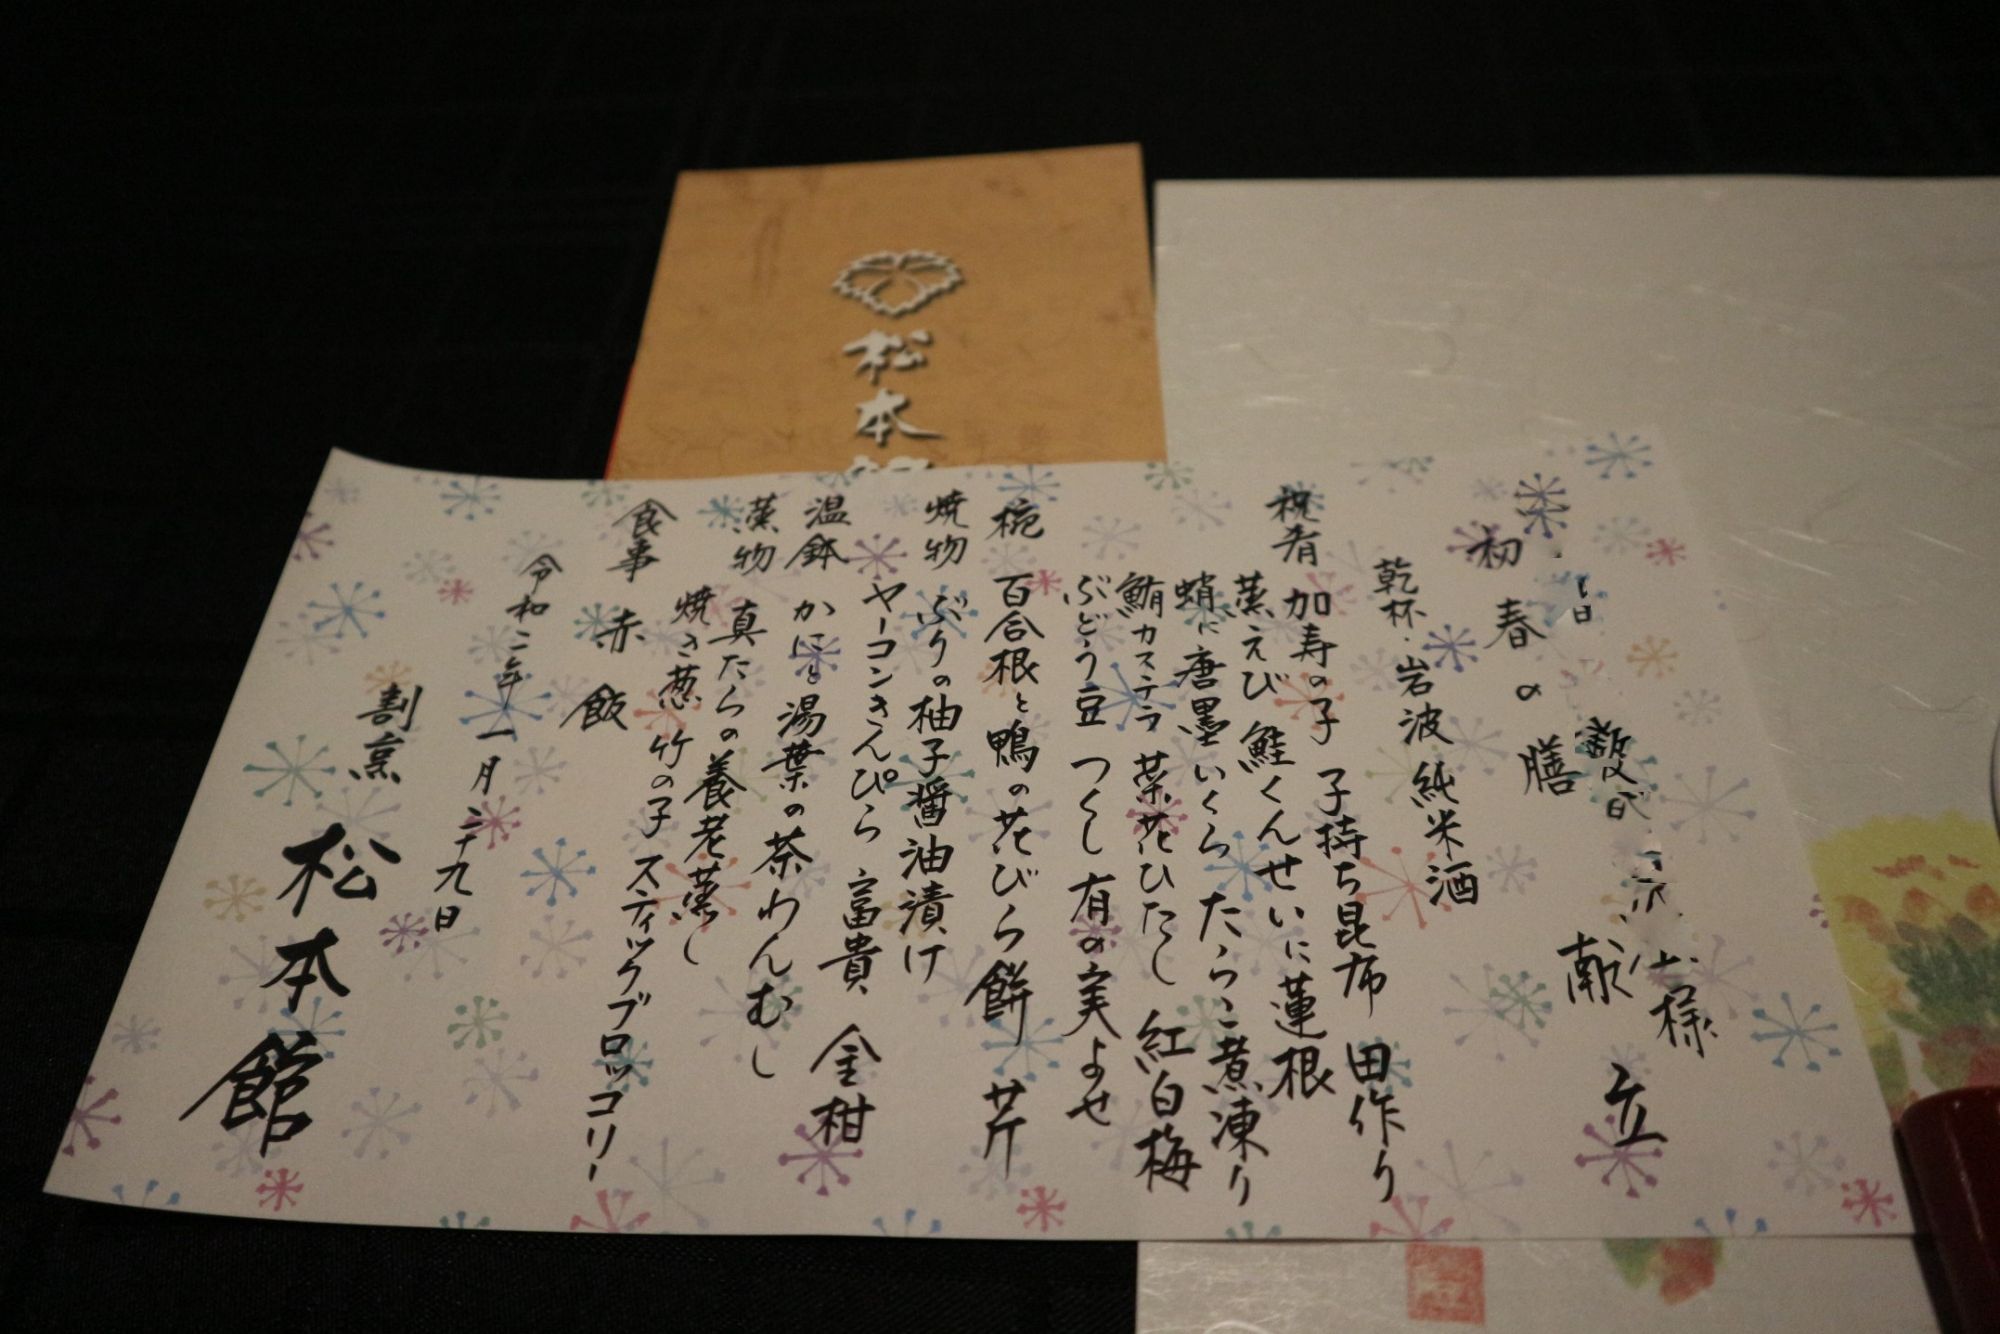 松本
様
初春の膳 献立
乾杯・岩波 純米酒
祝肴 加寿の子 子持ち昆布 田作り
蒸えび 鮭くんせいに蓮根
蛸に唐墨 いくら たらこ煮凍り
鮪カステラ 菜花ひたし 紅白梅
ぶどう豆 つくし 有の実よせ
椀 百合根と鴨の花びら餅 芹
焼物 ぶりの柚子醤油漬け
ヤーコンきんぴら 富貴 金柑
温鉢 かにと湯葉の茶わんむし
蒸物 真たらの養老蒸し
焼き葱 竹の子 スティックブロッコリー
食事 赤飯
令和二年一月二十九日
割烹 松本館